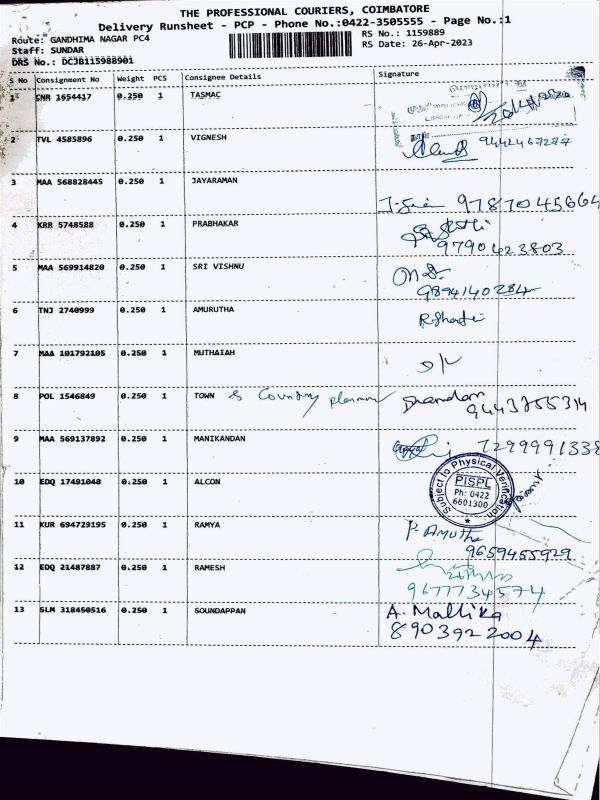 THE PROFESSIONAL COURIERS, COIMBATORE
Delivery Runsheet - PCP - Phone No.:0422-3505555 - Page No.:1
Route: GANDHIMA NAGAR PC4
RS No.: 1159889
Staff: SUNDAR
RS Date: 26-Apr-2023
DRS No.: DCJB115988901
S No Consignment No Weight PCS Consignee Details Signature
1 CNR 1654417 0.250 1 TASMAC
2 TVL 4585896 0.250 1 VIGNESH 9442467277
3 MAA 568828445 0.250 1 JAYARAMAN 9787045664
4 KRR 5748588 0.250 1 PRABHAKAR
9790423803
5 MAA 569914820 0.250 1 SRI VISHNU
9894140284
6 TNJ 2740999 0.250 1 AMURUTHA
7 MAA 101792105 0.250 1 MUTHAIAH
8 POL 1546849 0.250 1 TOWN & Country planner
9443755314
9 MAA 569137892 0.250 1 MANIKANDAN 7299991338
10 EDQ 17491048 0.250 1 ALCON
Subject to Physical Verification
PISPL
Ph: 0422
6601300
11 KUR 694729195 0.250 1 RAMYA P. Amutha
9659455929
12 EDQ 21487887 0.250 1 RAMESH
9677734574
13 SLM 318450516 0.250 1 SOUNDAPPAN A. Mallika
8903922004